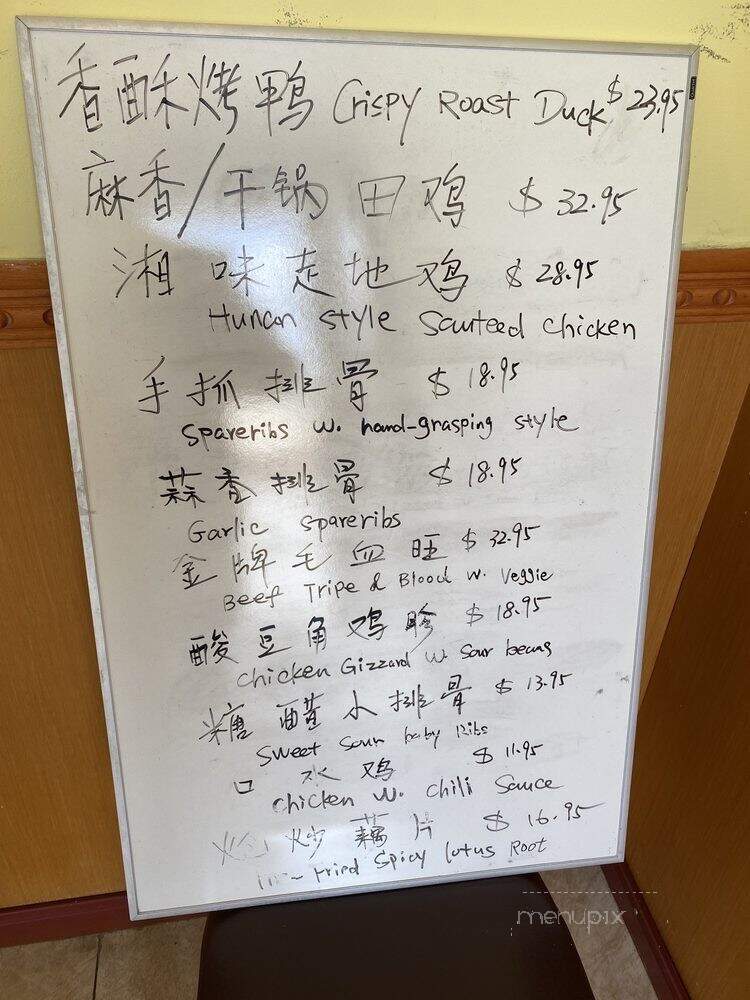 香酥烤鸭 Crispy Roast Duck $23.95
麻香/干锅田鸡 $32.95
湘味走地鸡 $28.95
Hunan style Sauteed chicken
手抓排骨 $18.95
spareribs w. hand-grasping style
蒜香排骨 $18.95
Garlic spareribs
金牌毛血旺 $32.95
Beef Tripe & Blood w. Veggie
酸豆角鸡胗 $18.95
chicken Gizzard w. sour beans
糖醋小排骨 $13.95
Sweet sour baby Ribs
口水鸡 $11.95
chicken w. chili sauce
炒藕片 $16.95
Fried Spicy lotus Root
menupix